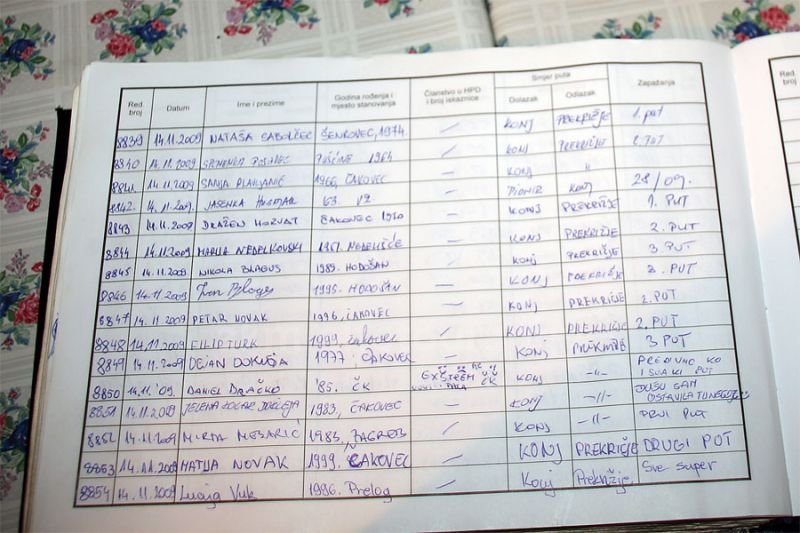 Red. broj Datum Ime i prezime Godina rođenja i mjesto stanovanja Članstvo u HPD i broj iskaznice Smjer puta Dolazak Odlazak Zapažanja Red. broj
8839 14.11.2009 NATAŠA SABOLČEC ŠENKOVEC, 1974 / KONJ PREKRIŽJE 1. put
8840 14.11.2009 1964 / KONJ PREKRIŽJE 2. PUT
14.11.2009 SANJA 1966, ČAKOVEC / KONJ "
8842. 14.11.2009. JASENKA 63. VŽ — PIONIR KONJ 28/09.
8843 14.11.2009 DRAŽEN HORVAT ČAKOVEC 1970 — KONJ PREKRIŽJE 1. PUT
8844 14.11.2009 MARIJA NEDELKOVSKI NEDELIŠĆE — KONJ PREKRIŽJE 2. PUT
8845 14.11.2009 NIKOLA BLAGUS 1989. HODOŠAN / KONJ PREKRIŽJE 3. PUT
8846 14.11.2009 1995. HODOŠAN — KONJ PREKRIŽJE 2. PUT
8847 14.11.2009 PETAR NOVAK 1996, ČAKOVEC — KONJ PREKRIŽJE 2. PUT
8848 14.11.2009 FILIP TURK 1999, Čakovec / KONJ PREKRIŽJE 2. PUT
8849 14.11.2009 DEJAN 1977. ČAKOVEC — KONJ PREKRIŽJE 3 PUT
8850 14.11.'09. DANIEL DRAČKO '85. ČK ČK KONJ -"- I SVAKI PUT
8851 14.11.2009 JELENA 1983, ČAKOVEC KONJ -"- DUŠU SAM OSTAVILA
8852 14.11.2009 MIRTA MESARIĆ 1983, ZAGREB / KONJ -"- PRVI PUT
8853 14.11.2009 MATIJA NOVAK 1999. ČAKOVEC / KONJ PREKRIŽJE DRUGI PUT
8854 14.11.2009 Lucija Vuk 1996. Prelog / Konj Prekrižje. Sve super